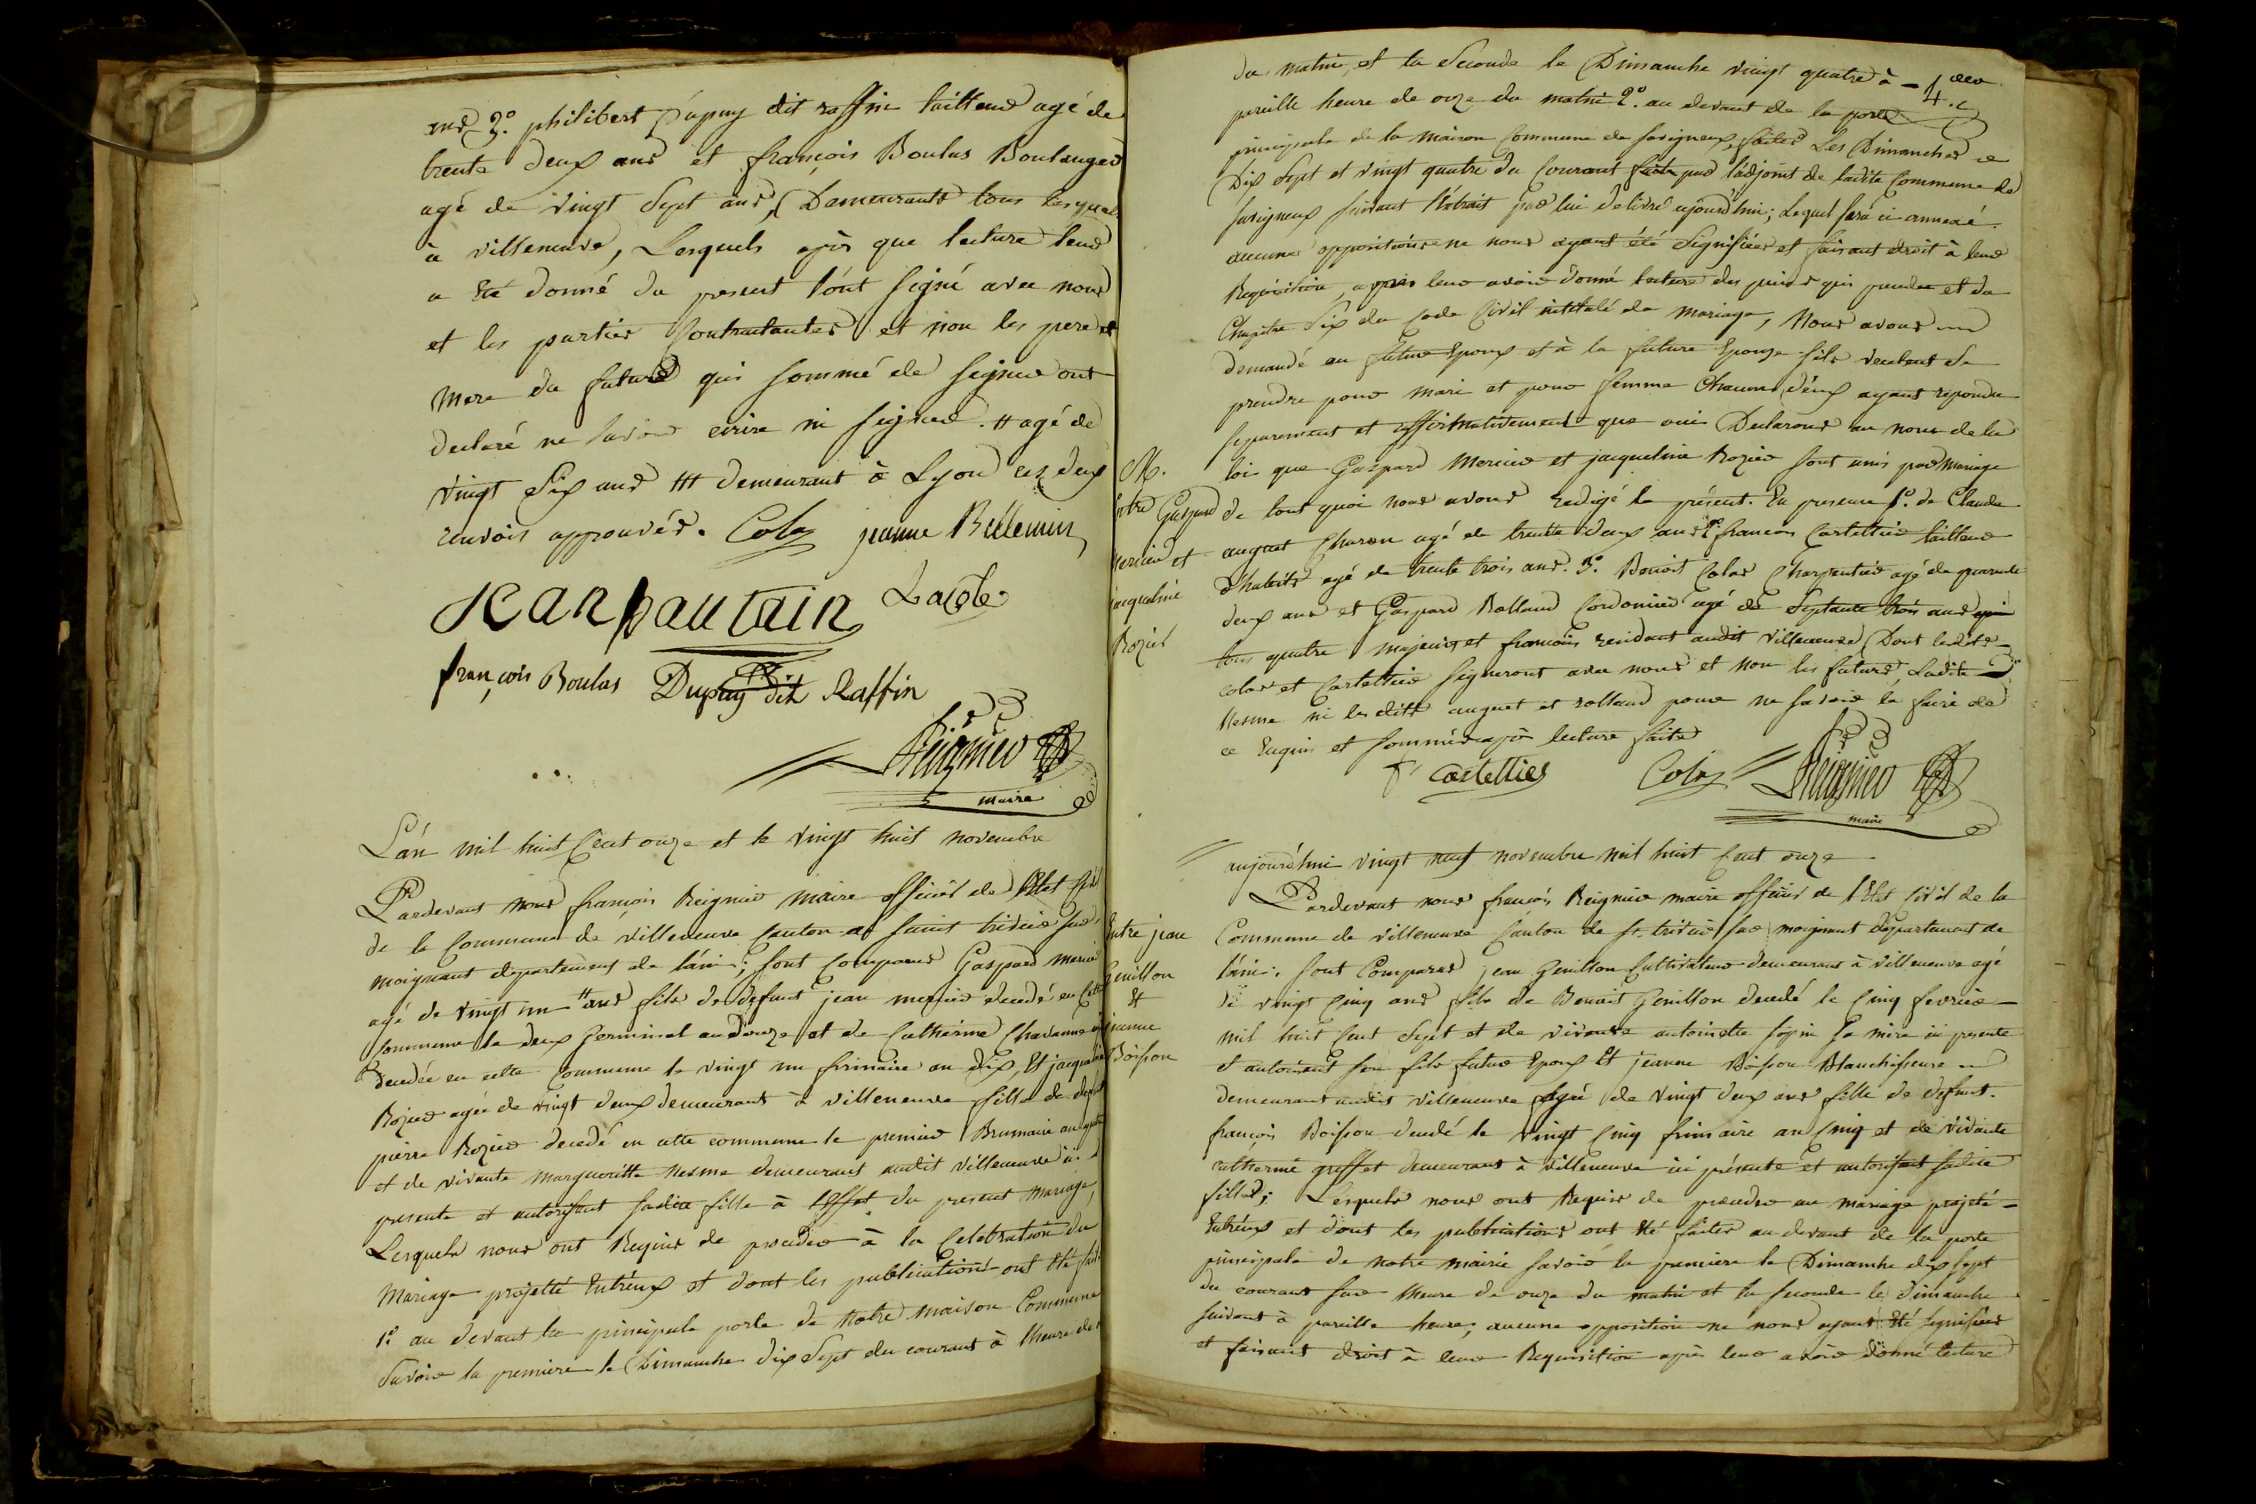 ans 3.° philibert Dupuy dit raffin tailleur agé de
trente deux ans et françois Boulas Boulanger
agé de vingt Sept ans, Demeurants tous lesquels
à villeneuve, Lesquels après que lecture leur
a été donné du present l'ont signé avec nous
et les parties Contractantes et non les pere et
mere du futur qui sommé de signer ont
declaré ne savoir ecrire ni signer. # agé de
vingt Six ans ### demeurant à Lyon ces deux
renvois approuvés. Colas jeanne Bellemin
Jean pautain Lacote
françois Boulas Dupuy dit Raffin
Reignier
maire
L'an mil huit Cent onze et le vingt huit novembre
Pardevant nous françois Reignier maire officier de l'Etat Civil
de la Commune de villeneuve Canton de saint trivier sur
moignant departement de l'ain; sont comparus Gaspard mercier
agé de vingt un # ans fils de defunt jean mercier decedé en Cette
commune le deux Germinal an douze et de Catherine Chavanne
decedée en cette Commune le vingt un frimaire an Dix, Et jacqueline
Rozier agée de vingt deux demeurant à villeneuve fille de defunt
pierre Rozier decedé en cette commune le premier Brumaire an
et de vivante marguerite nesme demeurant audit villeneuve ici
presente et autorisant sadite fille à l'effet du present mariage,
Lesquels nous ont Requis de proceder à la Celebration du
mariage projetté Entr'eux et dont les publications ont été faites
1.° au devant la principale porte de notre maison Commune
Savoir la premiere le Dimanche dix Sept du courant à l'heure de
du matin, et la Seconde le Dimanche vingt quatre à
pareille heure de onze du matin 2.° au devant de la porte
principale de la maison Commune de savigneux, faites Les Dimanches
Dix Sept et vingt quatre du Courant faite par l'adjoint de ladite Commune de
savigneux suivant l'extrait par lui delivré aujourd'hui; Lequel sera ci annexé.
aucunes oppositions ne nous ayant été signifiées et faisant droit à leur
Requisition, apprès leur avoir donné lecture des pieces qui precedent et du
Chapitre Six du Code Civil intitulé du mariage, Nous avons
demandé au futur Epoux et à la future Epouse s'ils veulent se
prendre pour mari et pour femme Chacun d'eux ayant repondu
separement et affirmativement que oui Declarons au nom de la
loi que Gaspard Mercier et jacqueline Rozier sont unis par mariage
M.
Entre Gaspard
mercier et
jacqueline
Rozier
de tout quoi nous avons redigé le présent. En presence 1.° de Claude
auguet Charon agé de trente deux ans 2.° francois Castellier tailleur
d'habits agé de trente trois ans. 3.° Benoit Colas Charpentier agé de quarante
deux ans et Gaspard Rolland Cordonier agé de septante trois ans
tous quatre majeurs et francois residant audit villeneuve Dont lesdits
colas et Castellier signeront avec nous et non les futurs, Ladite
Nesme ni les dits auguet et rolland pour ne savoir le faire de
ce Enquis et sommés après lecture faite
f castellier Colas Reignier
maire
aujourd'hui vingt neuf novembre mil huit Cent onze
Pardevant nous françois Reignier maire officier de l'Etat Civil de la
Entre jean
Genillon
Et
jeanne
Boisson
Commune de villeneuve Canton de st. trivier sur moignant departement de
l'ain. sont Comparus jean Genillon Cultivateur demeurant à villeneuve agé
de vingt Cinq ans fils de Benoit Genillon decedé le Cinq fevrier
mil huit Cent Sept et de vivante antoinette sa mère ici presente
et autorisant son fils futur Epoux Et jeanne Boisson Blanchisseuse
demeurant audit villeneuve agée de vingt deux ans fille de defunt
françois Boisson decedé le vingt Cinq frimaire an Cinq et de vivante
catherine greffet demeurant à villeneuve ici présente et autorisant sadite
fille; Lesquels nous ont Requis de proceder au mariage projeté
Entr'eux et dont les publications ont été faites au devant de la porte
principale de notre mairie savoir la premiere le Dimanche dix Sept
du courant sur l'heure de onze du matin et la seconde le dimanche
suivant à pareille heure; aucune opposition ne nous ayant été signifiée
et faisant droit à leur Requisition après leur avoir donné lecture